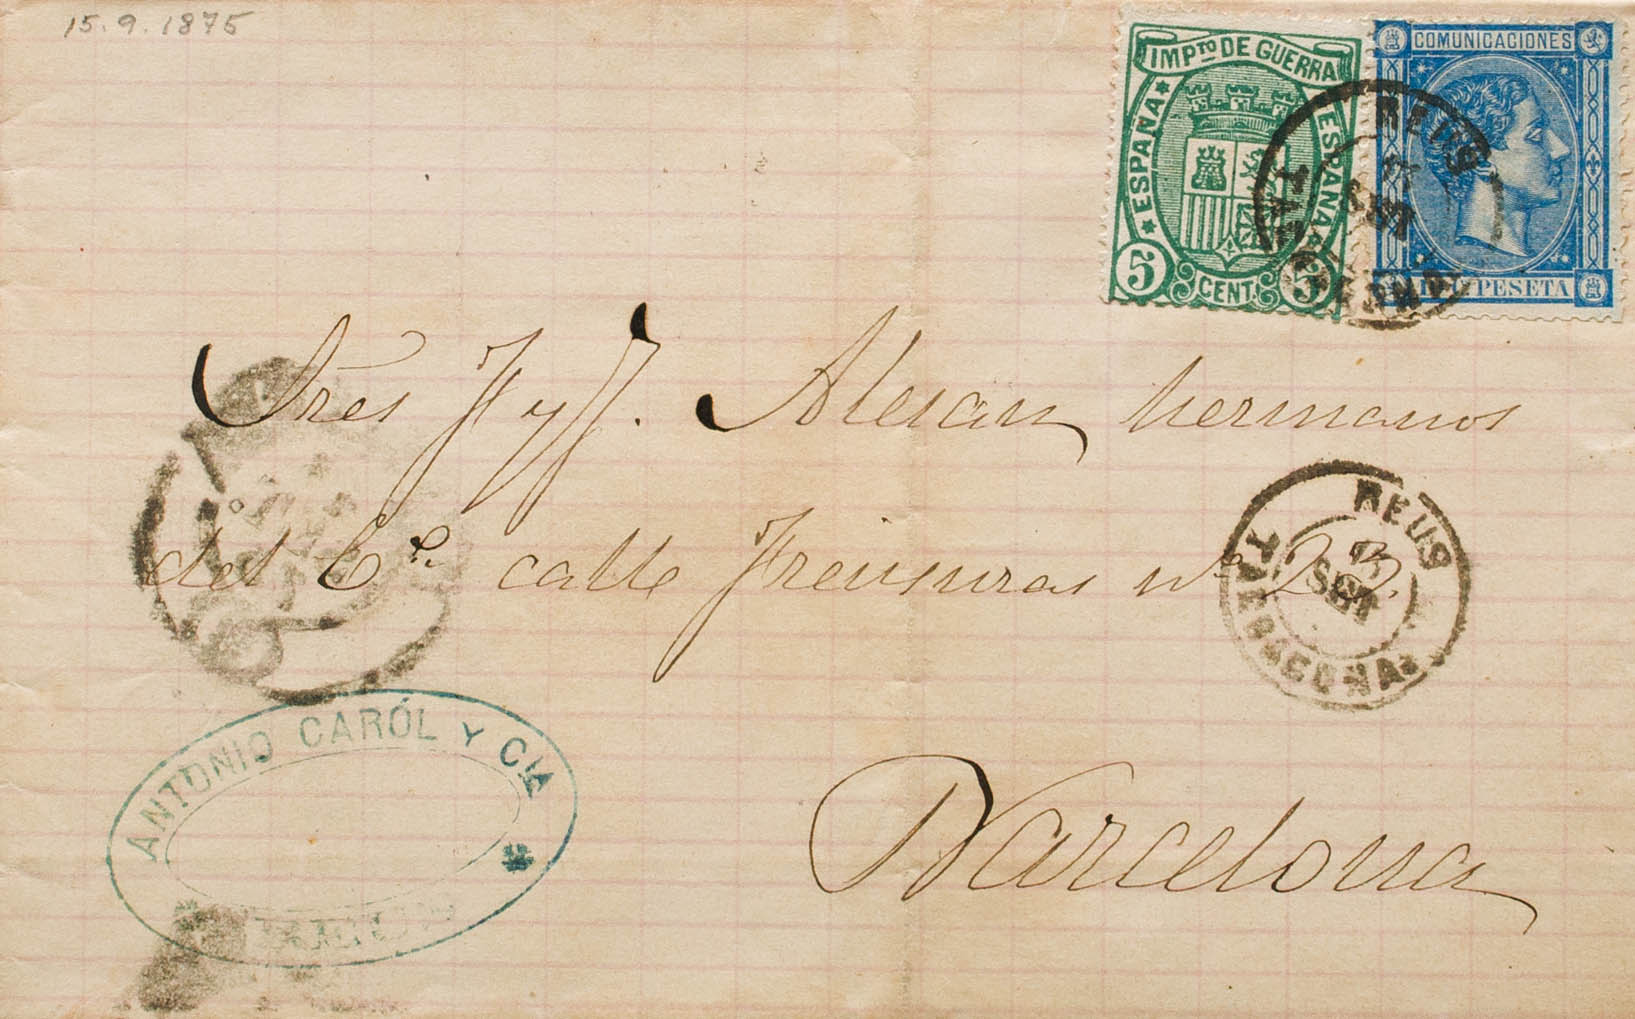 15.9.1875
IMPto DE GUERRA
ESPAÑA
ESPAÑA
5 CENT. 5
COMUNICACIONES
PESETA
REUS
SET
TARRAGONA
Sres F y J. Alesan hermanos
del Co calle Freixuras no 23.
REUS
SET
TARRAGONA
ANTONIO CARÓL Y CIA
Barcelona